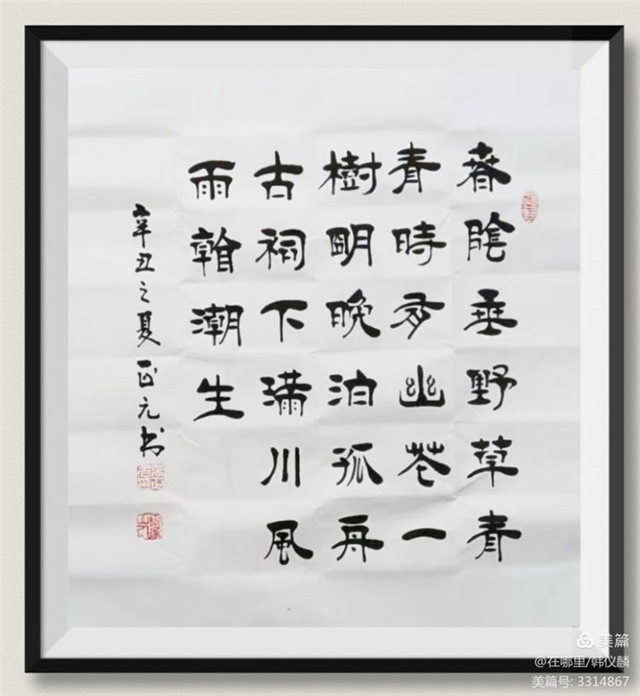 春陰垂野草青
青時有幽花一
樹明晚泊孤舟
古祠下滿川風
雨看潮生
辛丑之夏正元书
美篇
@在哪里/韩仪麟
美篇号: 3314867